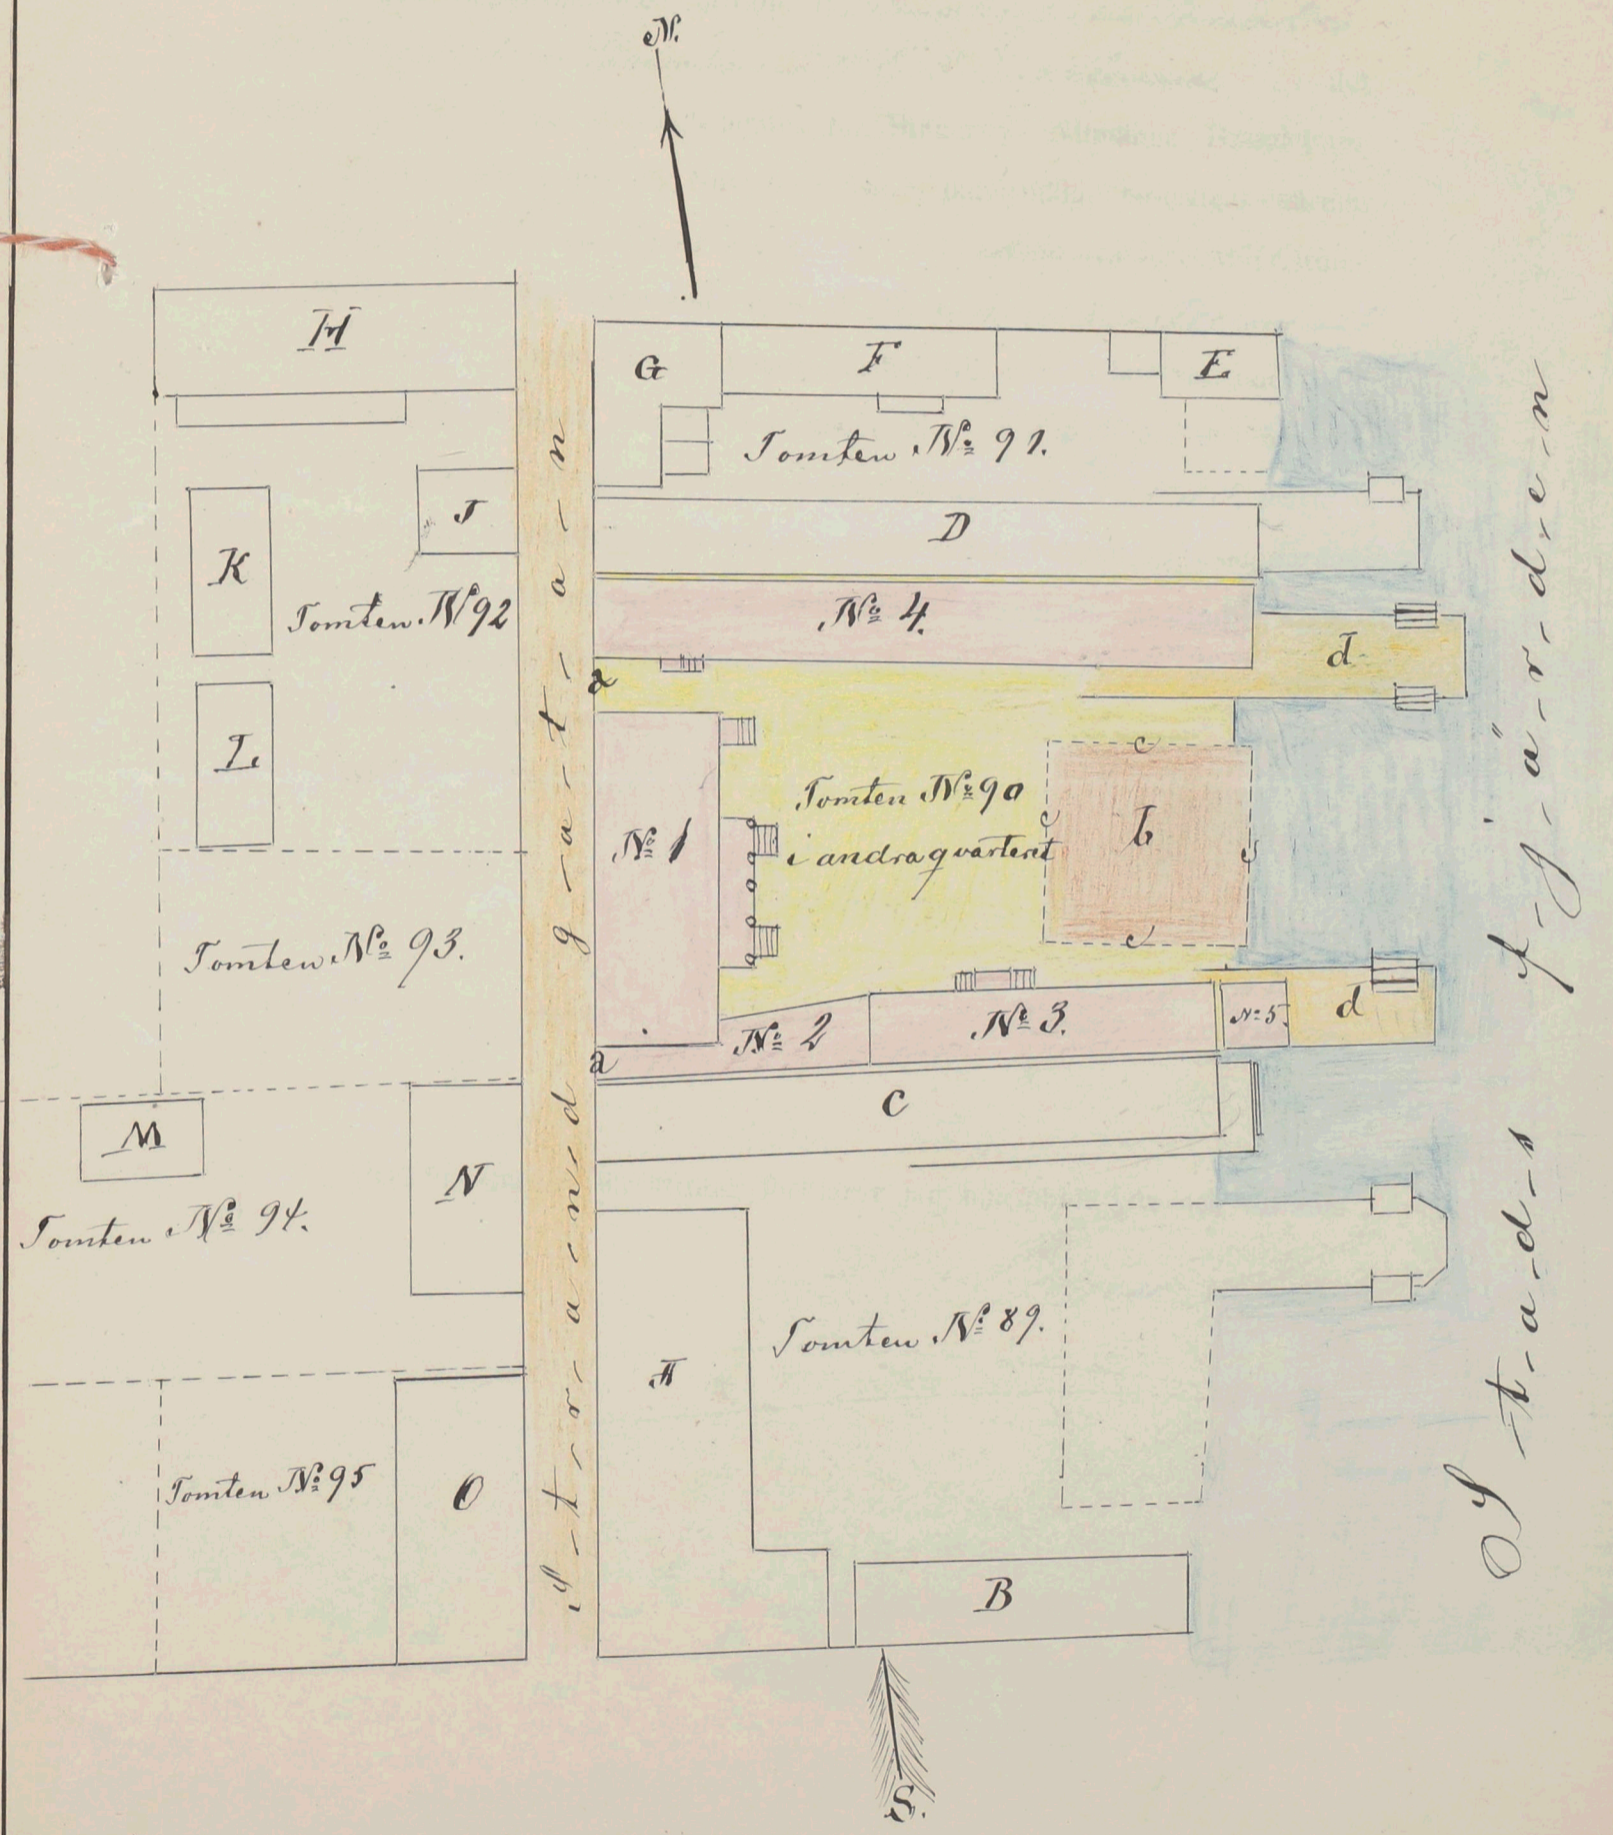 N.
H
G
F
E
Tomten No 91.
J
K
D
Tomten. No 92
No 4.
d
a
L
No 1
Tomten No 90
i andra qvarteret
c
c
b
c
c
Tomten No 93.
No 2
No 3.
No 5.
d
a
C
M
N
Tomten No 94.
Tomten No 89.
A
Tomten No 95
O
B
S.
S-t-r-a-n-d g-a-t-a-n
S-t-a-d-s f-j-ä-r-d-e-n